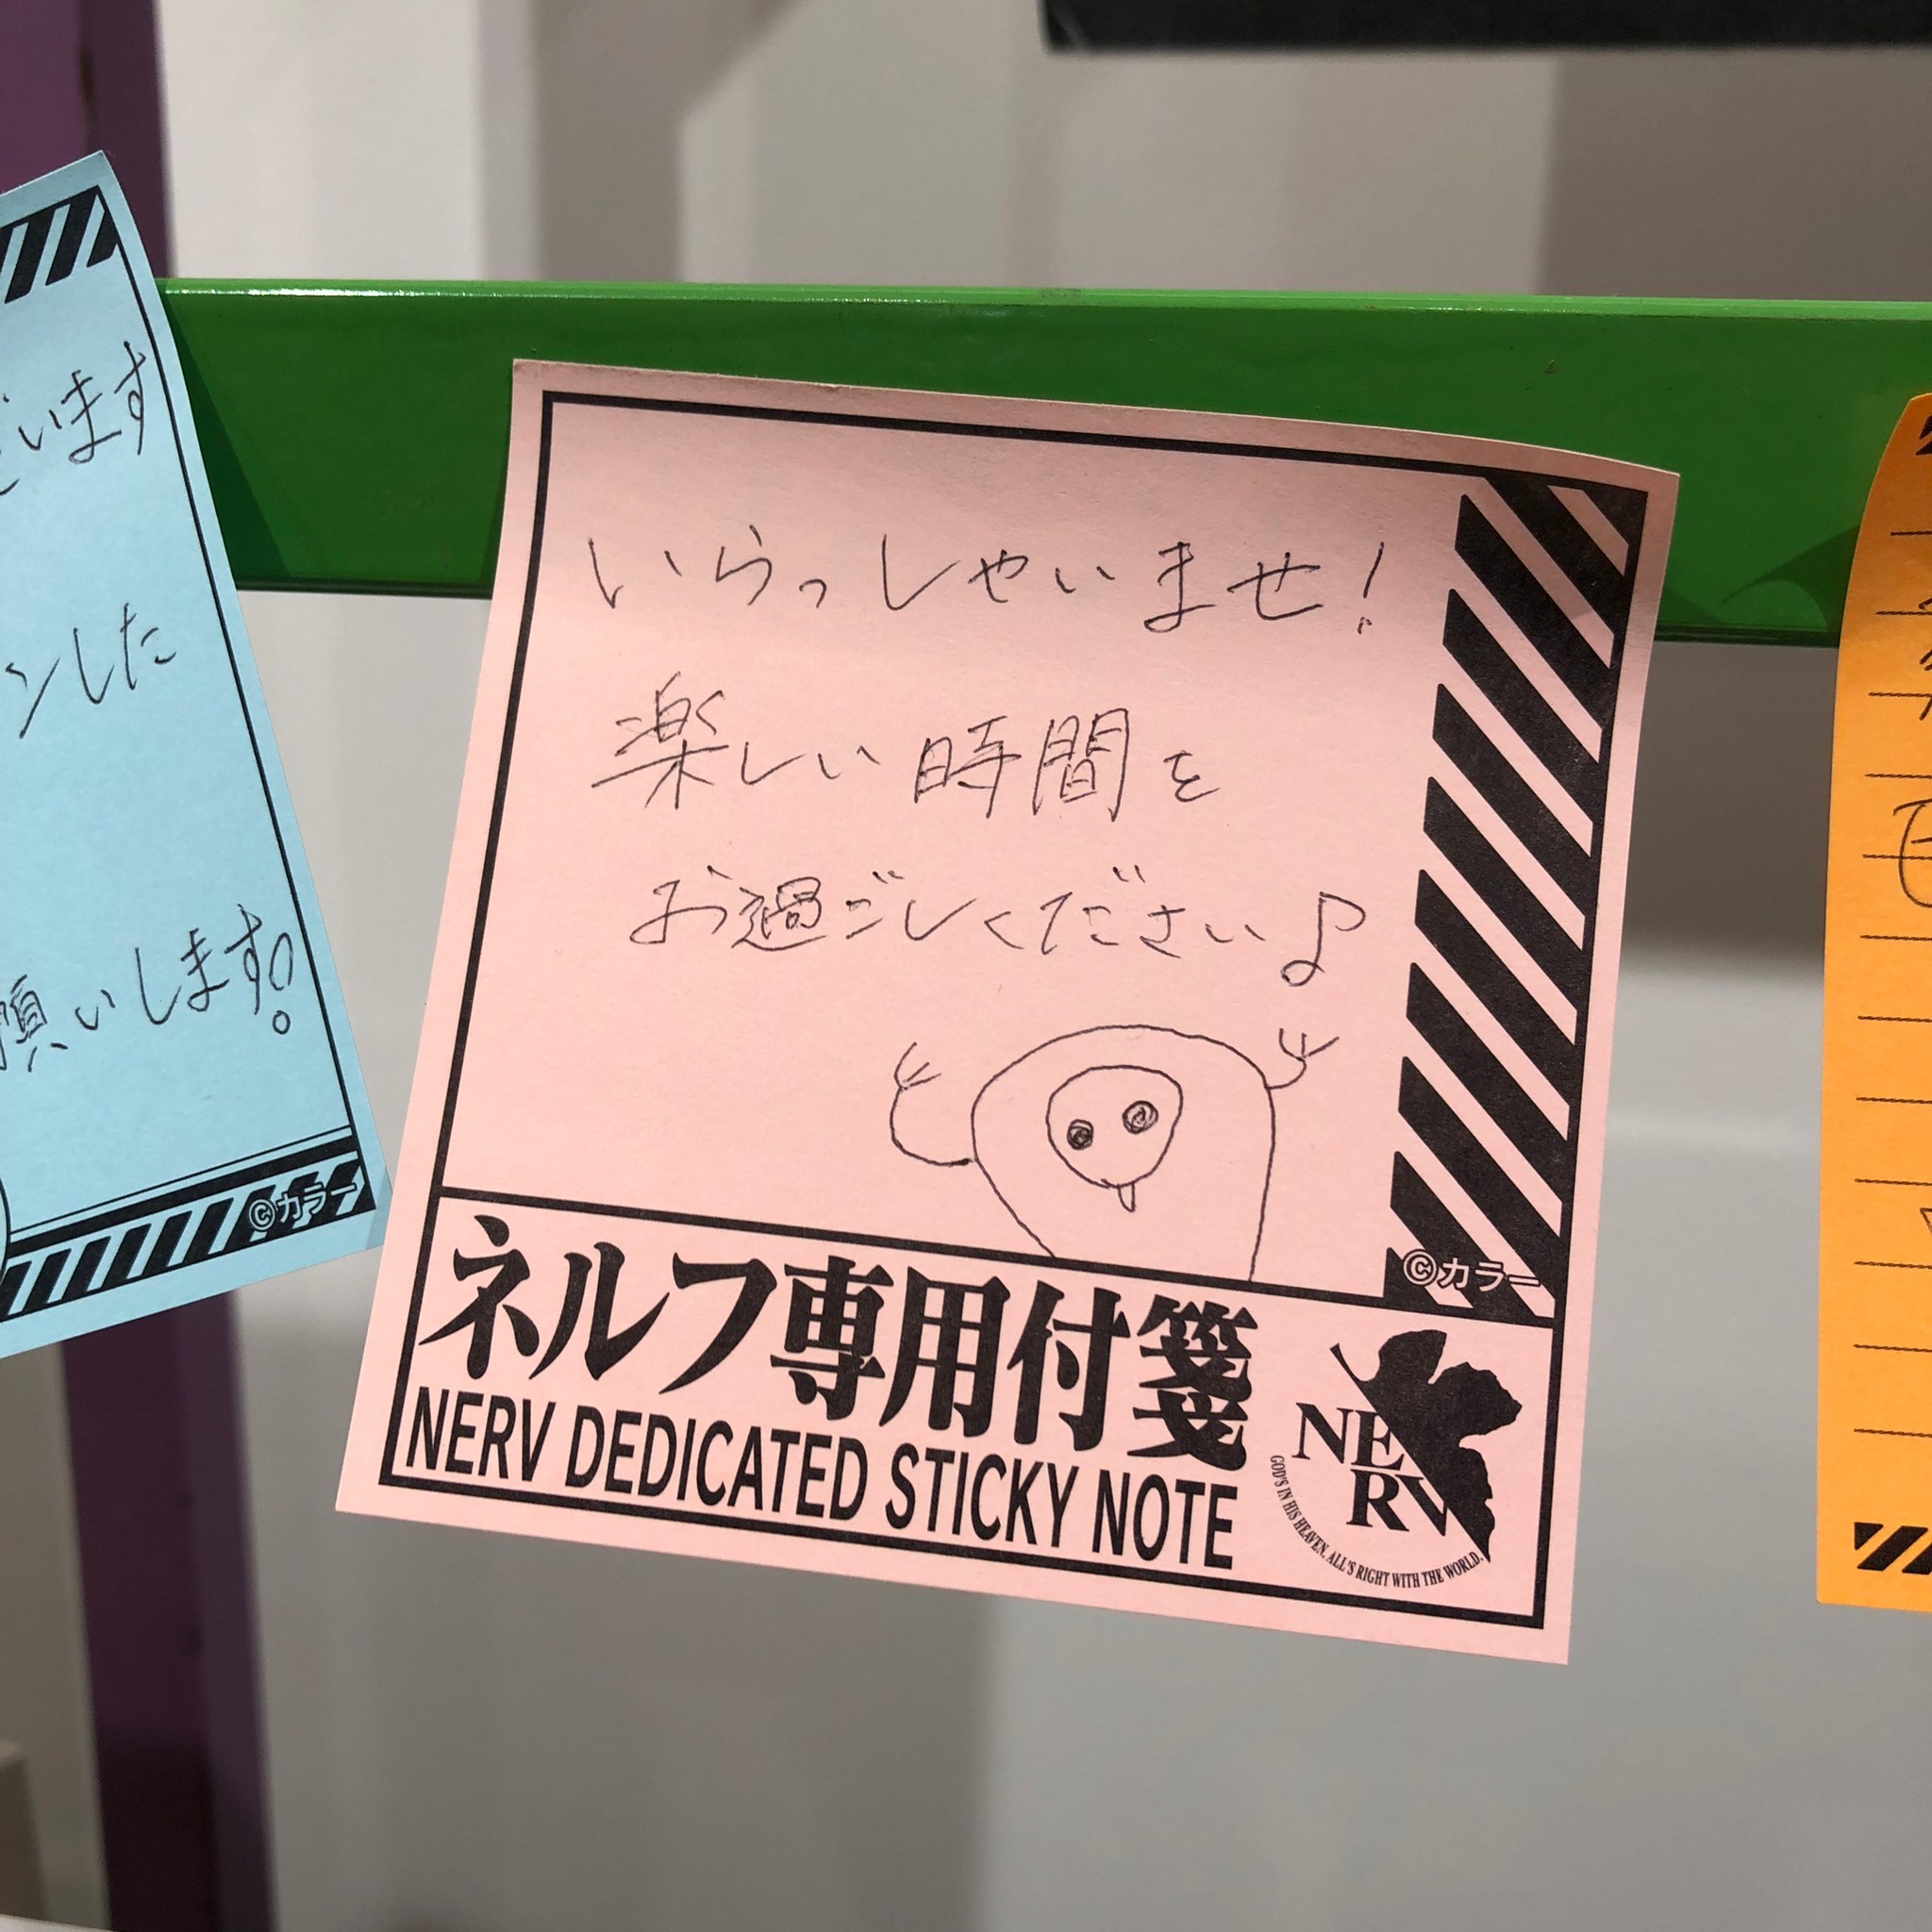 います
ンした
願いします!
©カラー
いらっしゃいませ!
楽しい時間を
お過ごしください♪
©カラー
ネルフ専用付箋
NERV DEDICATED STICKY NOTE
NERV
GOD'S IN HIS HEAVEN. ALL'S RIGHT WITH THE WORLD.